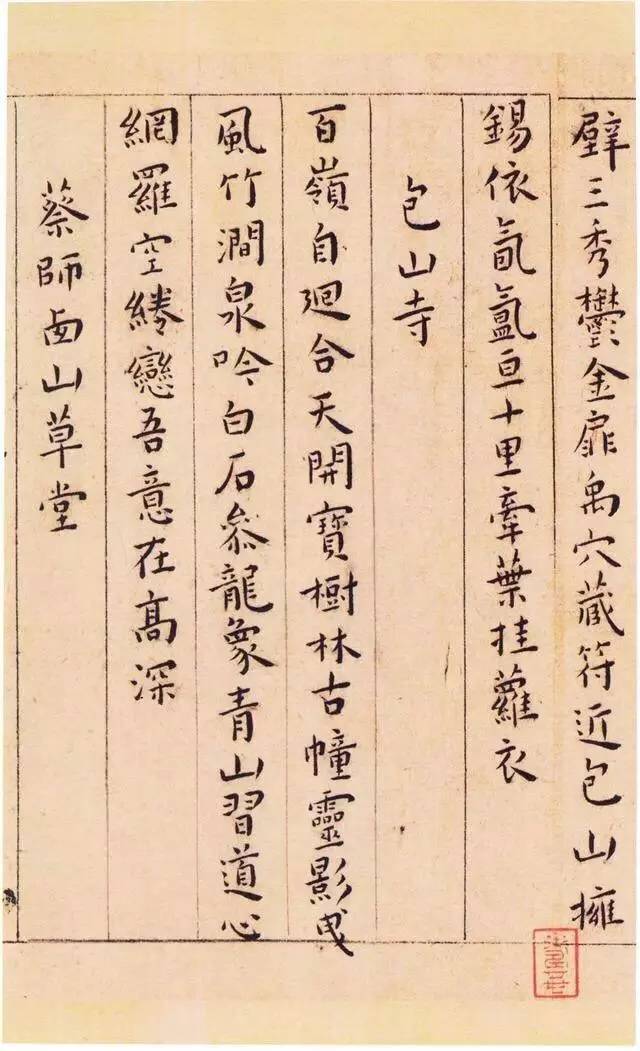 壁三秀鬱金扉禹穴藏符近包山擁
錫依氤氳亘十里牽葉挂蘿衣
包山寺
百嶺自迴合天開寶樹林古幢靈影曳
風竹澗泉吟白石叅龍象青山習道心
網羅空綣戀吾意在高深
蔡師西山草堂